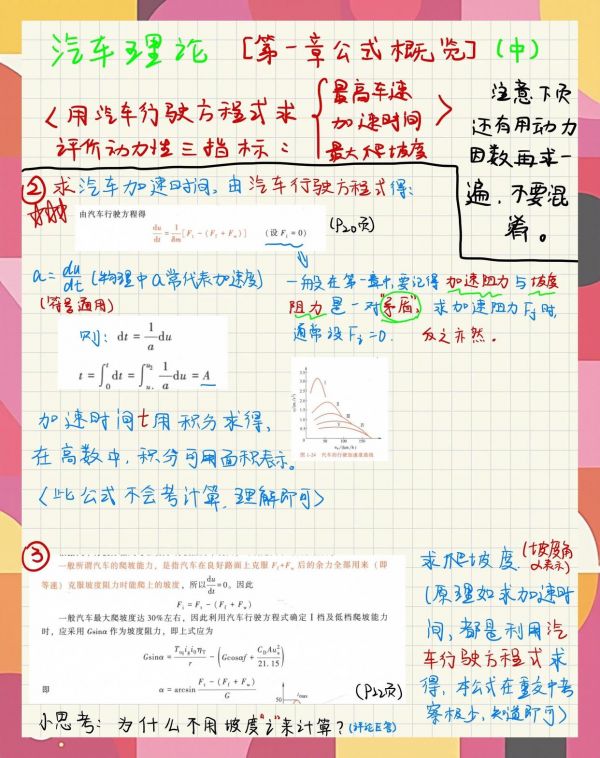 汽车理论 [第一章公式概览](中)
<用汽车行驶方程式求
评价动力性三指标：
最高车速
加速时间
最大爬坡度
>
注意下页
还有用动力
因数再求一
遍，不要混
淆。
② 求汽车加速时间，由汽车行驶方程式得：
由汽车行驶方程得
du/dt = 1/δm [Ft − (Ff + Fw)] (设 Fi = 0)
(P20页)
a = du/dt (物理中a常代表加速度)
(符号通用)
则：dt = 1/a du
t = ∫₀ᵗ dt = ∫ 1/a du = A
一般在第一章中,要记得加速阻力与坡度
阻力是一对"矛盾"，求加速阻力Fj时,
通常设Fi=0. 反之亦然。
图 1-24 汽车的行驶加速度曲线
加速时间t用积分求得，
在高数中，积分可用面积表示。
<此公式不会考计算，理解即可>
③
一般所谓汽车的爬坡能力，是指汽车在良好路面上克服 Ff+Fw 后的余力全部用来（即
等速）克服坡度阻力时能爬上的坡度，所以 du/dt = 0。因此
Fi = Ft − (Ff + Fw)
一般汽车最大爬坡度达 30%左右，因此利用汽车行驶方程式确定 Ⅰ 档及低档爬坡能力
时，应采用 Gsinα 作为坡度阻力，即上式应为
Gsinα = Ttq ig i0 ηT / r − (Gcosαf + CD A ua² / 21.15)
即 α = arcsin (Ft − (Ff + Fw)) / G
(P22页)
求爬坡度 (坡度角α表示)
(原理如求加速时
间，都是利用汽
车行驶方程式求
得，本公式在重交中考
察极少，知道即可)
小思考：为什么不用坡度"i"来计算？(评论区答)